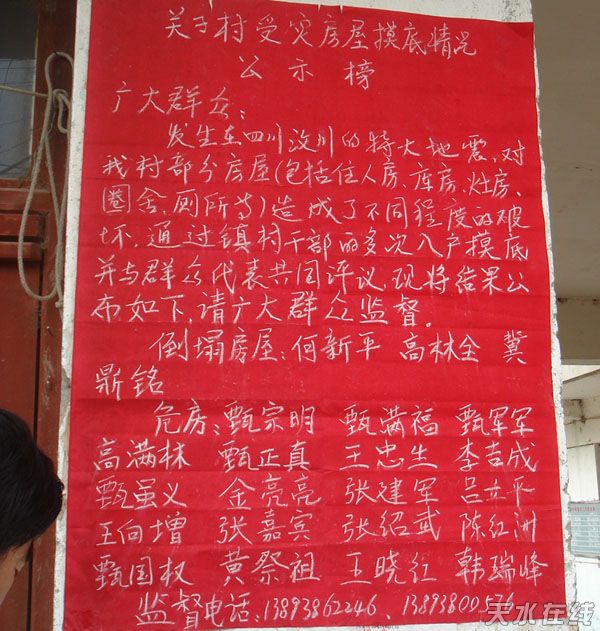 关于村受灾房屋摸底情况
公示榜
广大群众：
发生在四川汶川的特大地震，对
我村部分房屋(包括住人房、库房、灶房、
圈舍、厕所等)造成了不同程度的破
坏，通过镇村干部的多次入户摸底
并与群众代表共同评议，现将结果公
布如下，请广大群众监督。
倒塌房屋：何新平 高林全 冀
鼎铭
危房：甄宗明 甄满福 甄军军
高满林 甄正真 王忠生 李吉成
甄虽义 金亮亮 张建军 吕立平
王向增 张嘉宾 张绍武 陈红洲
甄国权 黄祭祖 王晓红 韩瑞峰
监督电话：13893862246、13893800576
天水在线